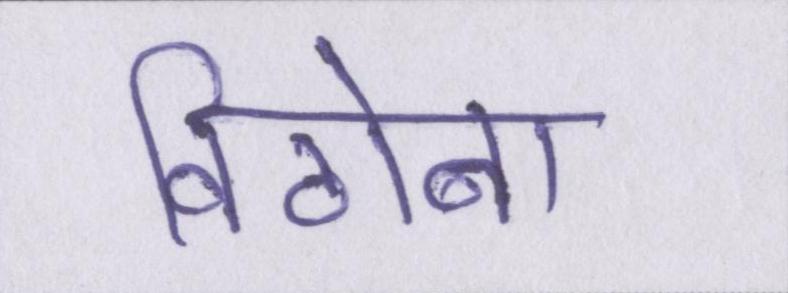 विठोबा